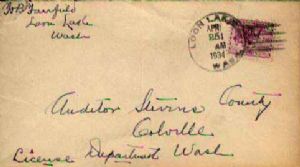 Fairfield
Loon Lake
Wash
LOON LAKE
APR
25
AM
1934
WASH.
Auditor Stevens County
Colville
License Department Wash